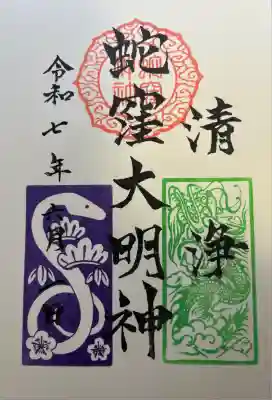 清浄
蛇窪大明神
令和七年六月一日